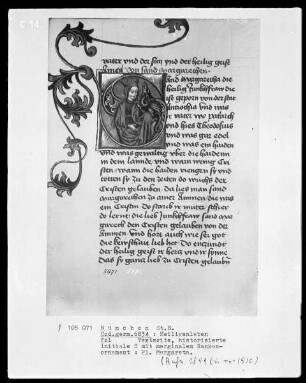 C 14
vater vnd der sun vnd der heilig geist
Amen von sand margrethen
and margretha die
heilig Junckfraw die
ist geporn von der stat
vnd was
vater
vnd hies Theodosius
vnd was gar edel
vnd was gewaltig vber die haiden
in dem lannde vnd warn wenig Cri
sten wann die haiden
totten sy zu den zeiten do wuchs der
Cristen gelauben Da lies man sand
margrethen zu einer Ammen die was
ein Cristen Do starb ir muter
do lernt die lieb Junckfraw sand mar
greth den Cristen gelauben von der
Ammen vnd hort auch wie sei got
die kewschait lieb het Do enzundt
der heilig geist ir hercz vnd ir synne
Das sy gancz lieb zu Cristen gelauben
5871
F 105 071 München St.B.
Cod.germ.6834 : Heiligenleben
fol Textseite, historisierte
Initiale S mit marginalem Ranken-
ornament : Hl. Margareta.